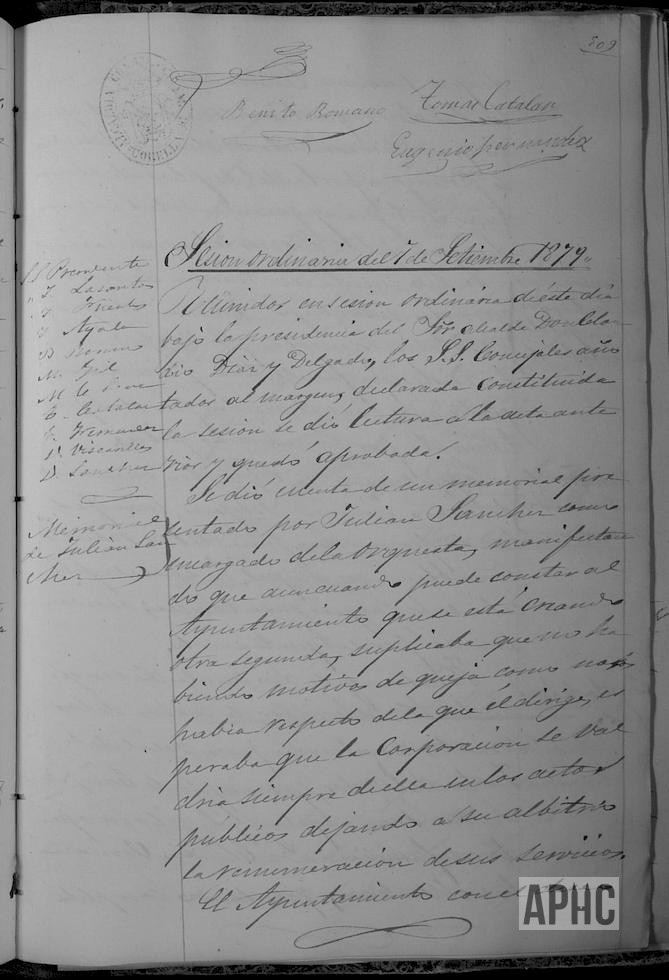 509
Benito Romano
Tomas Catalan
Eugenio Fernandez
Sesion ordinaria del 7 de Setiembre 1879.
S S Presidente
Lasantos
Ayala
B Romano
M. Gil
T. Catalan
F. Fernandez
D. Sanchez
Memorial
de Julian San
chez
Reunidos en sesion ordinaria de éste dia
bajo la presidencia del Sor Alcalde Don
Diaz y Delgado, los S.S. Concejales ano
tados al margen, declarada constituida
la sesion se dió lectura a la acta ante
rior y quedó aprobada.
Se dió cuenta de un memorial pre
sentado por Julian Sanchez como
encargado de la Orquesta, manifestan
do que aun cuando puede constar al
Ayuntamiento que se está creando
otra segunda, suplicaba que no ha
biendo motivos de queja como no los
habia respecto de la que él dirige, es
peraba que la Corporacion se val
dria siempre de ella en los actos
públicos dejando a su albitrio
la renumeración de sus servicios.
El Ayuntamiento
APHC